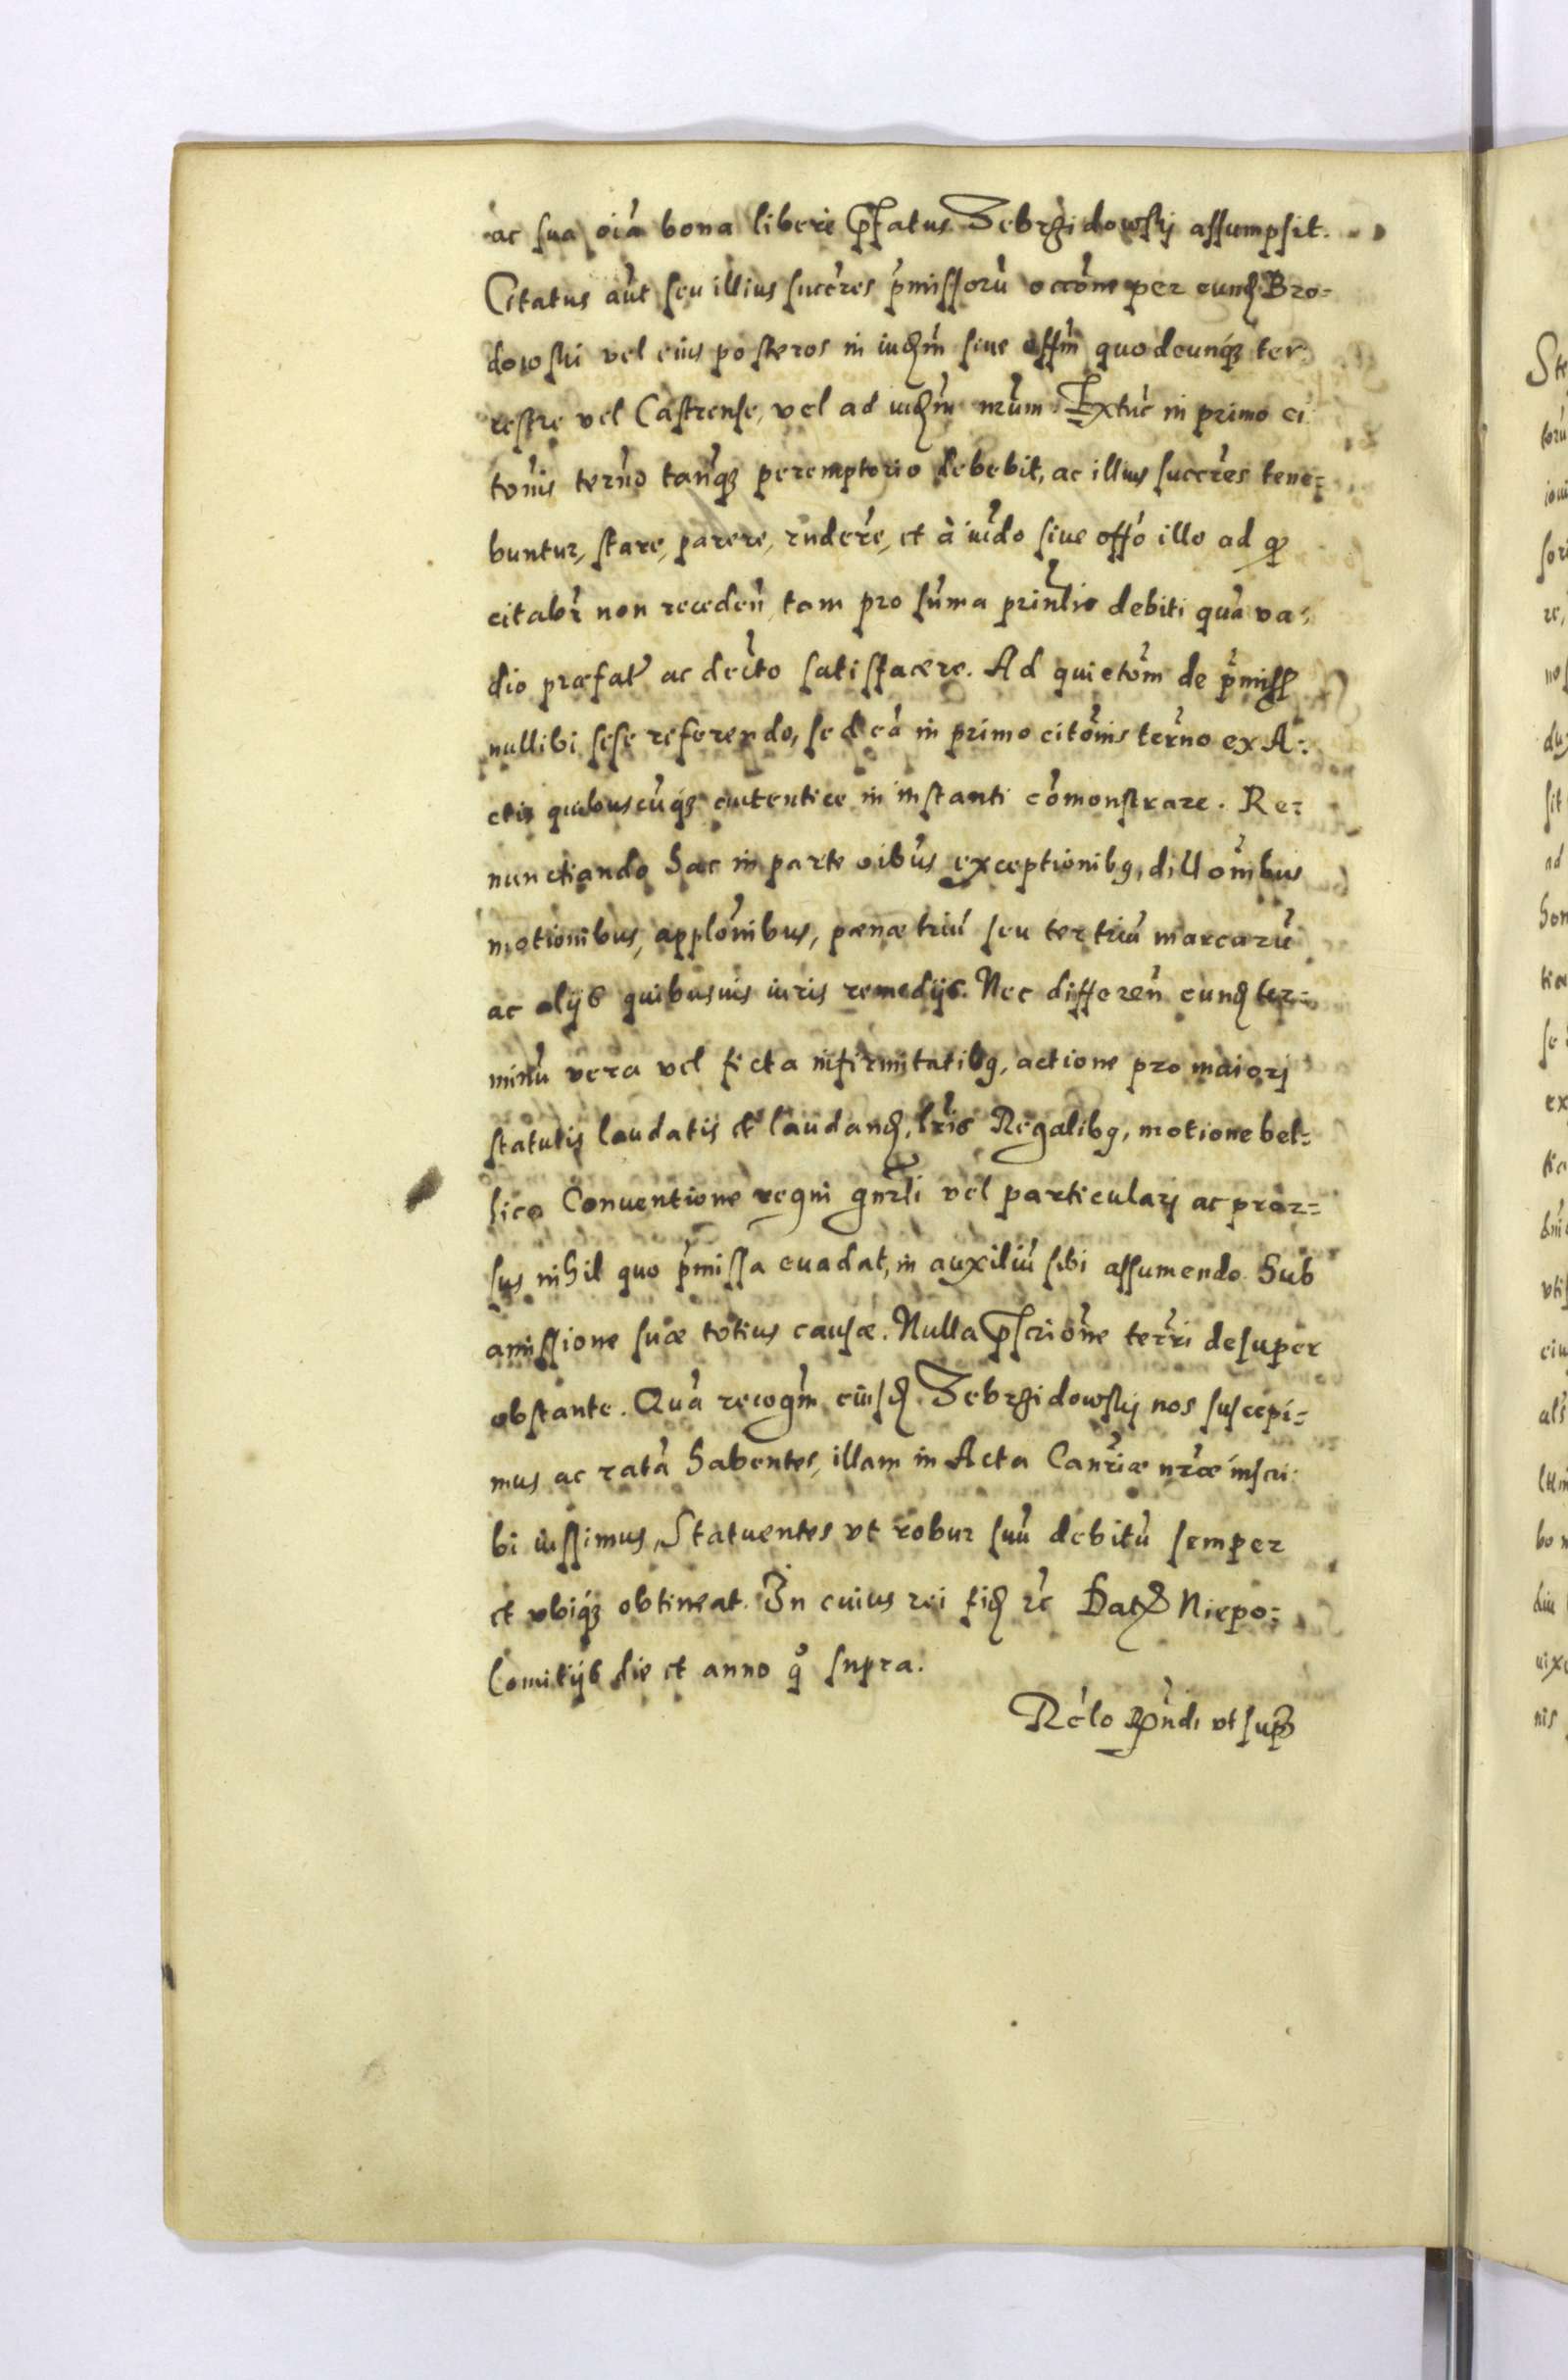 ac sua oı̃a bona libere p̃fatus Zebrzidowskj assumpsit.
Citatus aũt seu illius succr̃es p̃missorũ occõne per eund̃ Bro=
dowski vel eius posteros in iud̃m̃ siue off̃m quodcunq̢ ter
restre vel Castrense, vel ad iud̃m̃ nr̃um. Extũc in primo ci
tõnis ter̃no tanq̃ peremptorio debebit, ac illius succr̃es tene=
buntur, stare, parere, rn̄dere, et à iud̃o siue off̃o illo ad q̃
citabr̃ non receden̄, tam pro sũma prin̄lis debiti quã va=
dio præfat̃ ac dec̃to satisfacere. Ad quietõm de p̃miss̃
nullibi sese referendo, sed eã in primo citõnis ter̃no ex A=
ctis quibuscũq̢ autentice in instanti cõmonstrare. Re=
nunctiando hac in parte oĩbus exceptionibg, dillõnibus
motionibus, applõnibus, pœnæ triũ seu ter triũ marcarũ
ac alijs quibusuis iuris remedijs. Nec differen̄ eund̃ ter=
minũ vera vel ficta infirmitatibg, actione pro maiorj
statutis laudatis et laudand̃, lr̃is Regalibg, motione bel=
lica Conuentione regni gnr̃li vel particularj ac pror=
sus nihil quo p̃missa euadat, in auxiliũ sibi assumendo. Sub
amissione suæ totius causæ. Nulla p̃scriõne ter̃ri desuper
obstante. Quã recog̃m eiusd̃ Zebrzidowskj nos suscepi=
mus ac ratã habentes, illam in Acta Canr̃iæ nr̃æ inscri
bi iussimus, Statuentes vt robur suũ debitũ semper
et vbiq̢ obtineat. In cuius rei fid̃ ꝛc̃ Dat̃ Niepo=
lomitijs die et anno q̃ supra.
Rel̃o Rp̃ndi vt sup̃